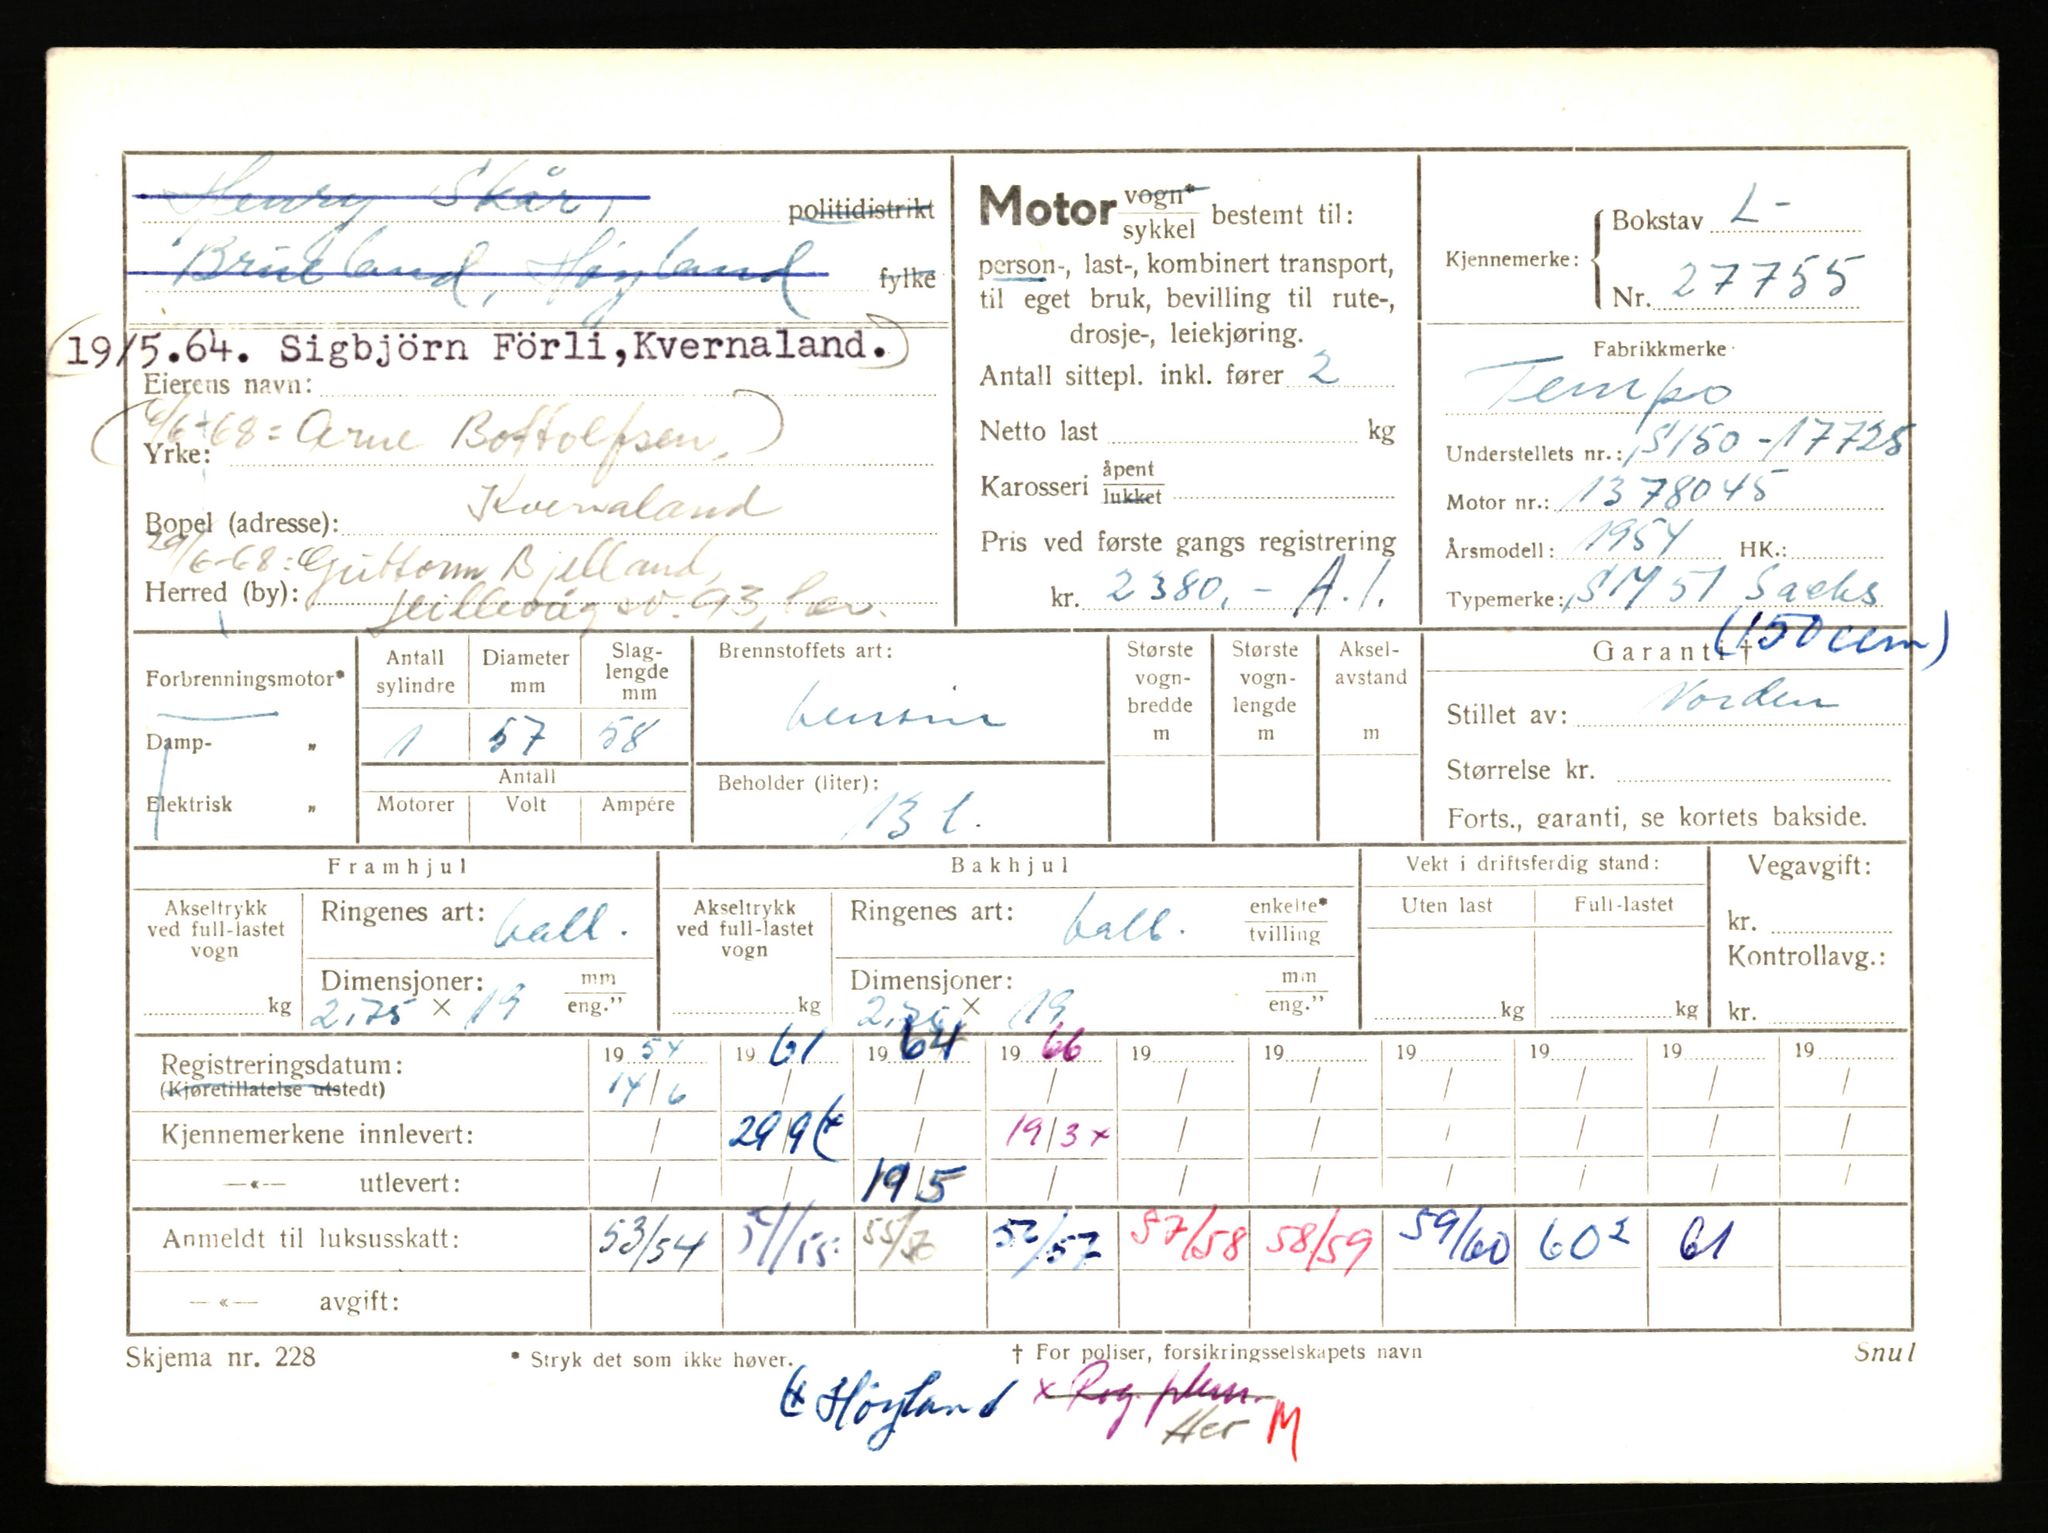 Henry Skår, politidistrikt
Brueland, Høyland fylke
19/5.64. Sigbjörn Förli, Kvernaland.
Eierens navn:
6/6-68 = Arne Bottolfsen,
Yrke:
Kvernaland
Bopel (adresse):
29/6-68: Guttorm Bjelland,
Herred (by): Hillevåg sv. 93, her.
Motor vogn* / sykkel bestemt til:
person-, last-, kombinert transport,
til eget bruk, bevilling til rute-,
drosje-, leiekjøring.
Antall sittepl. inkl. fører 2
Netto last kg
Karosseri åpent / lukket
Pris ved første gangs registrering
kr. 2380,- A.1.
Kjennemerke: Bokstav L-
Nr. 27755
Fabrikkmerke
Tempo
Understellets nr.: S150-17725
Motor nr.: 1378045
Årsmodell: 1954 HK.:
Typemerke: SM 51 Sachs
(150ccm)
Forbrenningsmotor*
Damp- „
Elektrisk „
Antall sylindre Diameter mm Slaglengde mm
1 57 58
Antall
Motorer Volt Ampére
Brennstoffets art:
bensin
Beholder (liter):
13 l.
Største vognbredde m
Største vognlengde m
Akselavstand m
Garanti †
Stillet av: Norden
Størrelse kr.
Forts., garanti, se kortets bakside.
Framhjul
Akseltrykk ved full-lastet vogn kg
Ringenes art: ball.
Dimensjoner: mm / eng.”
2,75 × 19
Bakhjul
Akseltrykk ved full-lastet vogn kg
Ringenes art: ball. enkelte* / tvilling
Dimensjoner: mm / eng.”
2,75 × 19
Vekt i driftsferdig stand:
Uten last Full-lastet
kg kg
Vegavgift:
kr.
Kontrollavg.:
kr.
Registreringsdatum: 19 54 19 61 19 64 19 66 19 19 19 19 19 19
(Kjøretillatelse utstedt) 14/6 / / / / / / / / /
Kjennemerkene innlevert: / 29/9 (x / 19/3 x / / / / / /
—«— utlevert: / / 19/5 / / / / / / /
Anmeldt til luksusskatt: 53/54 54/55 55/56 57/58 58/59 59/60 60² 61
—«— avgift:
Skjema nr. 228 * Stryk det som ikke høver. † For poliser, forsikringsselskapets navn Snul
(x Høyland x Rog. plm.
Her M